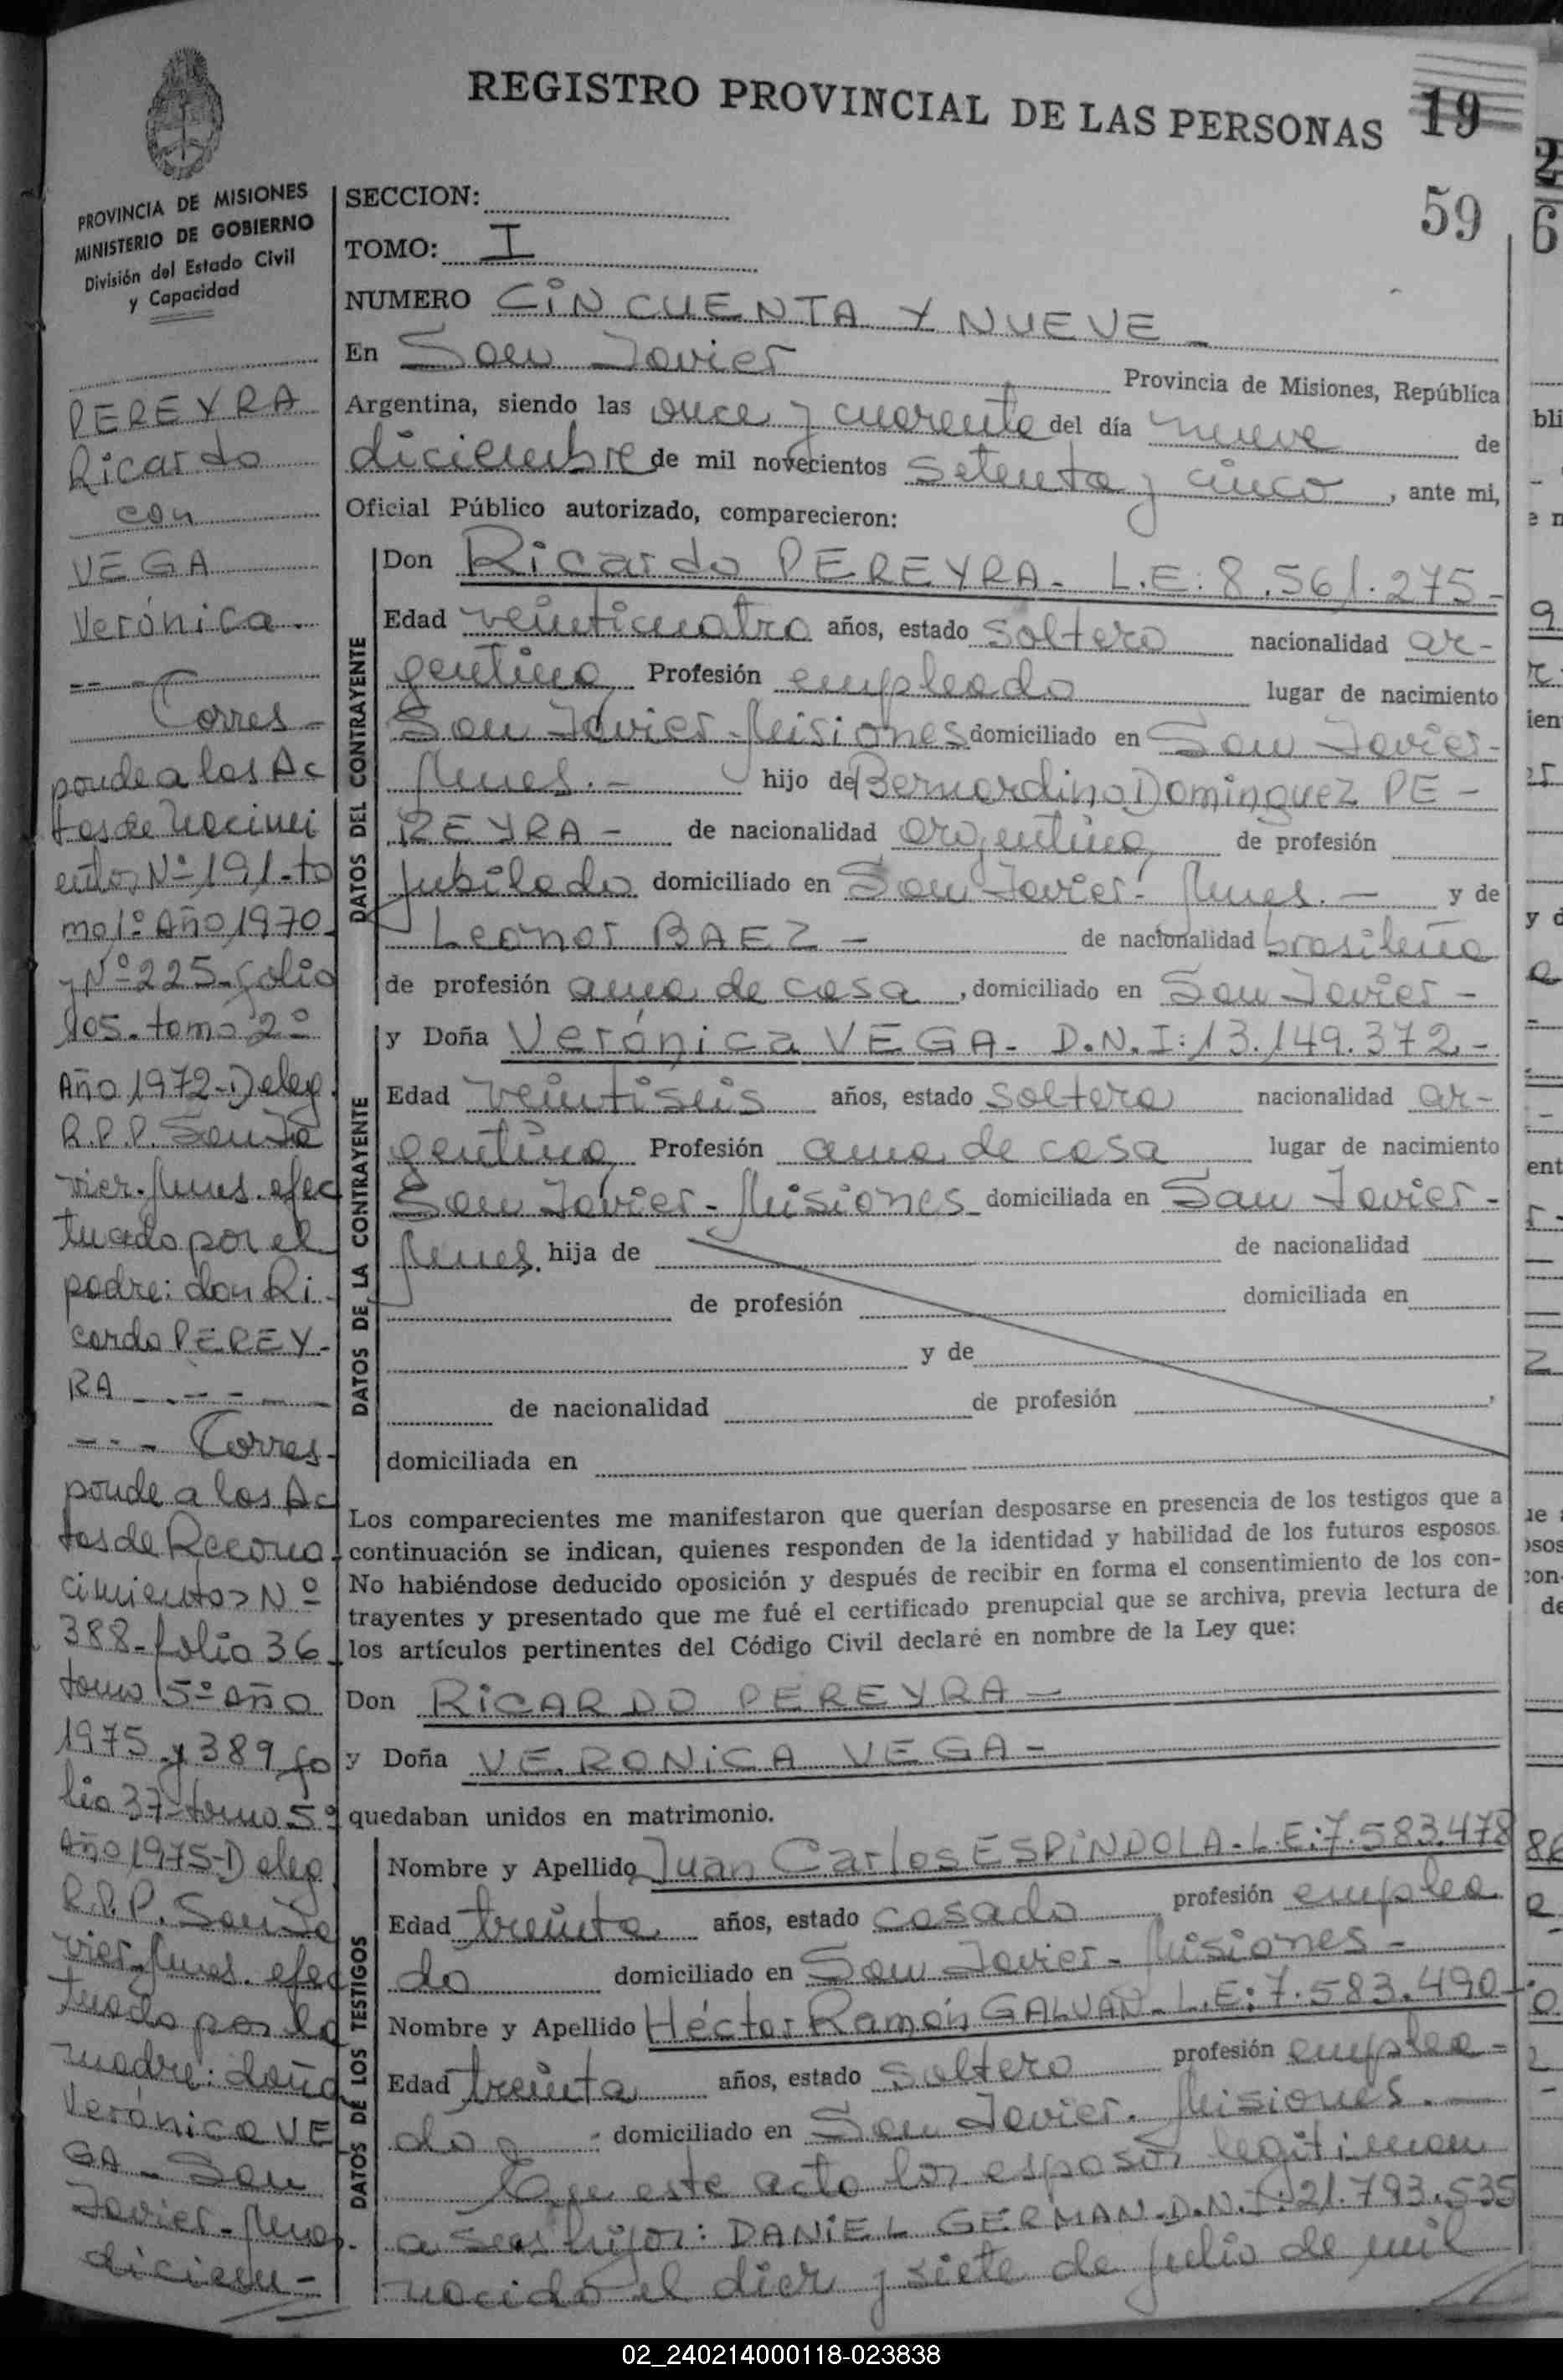 REGISTRO PROVINCIAL DE LAS PERSONAS
19
59
PROVINCIA DE MISIONES
MINISTERIO DE GOBIERNO
División del Estado Civil
y Capacidad
PEREYRA
Ricardo
con
VEGA
Verónica.
Corres-
ponde a las Ac
tas de Nacimi
entos Nº 191-to
mo 1º Año 1970
y Nº 225-folio
105-tomo 2º
Año 1972-Deleg.
R.P.P. San Ja
vier-Mnes. efec
tuado por el
padre: don Ri-
cardo PEREY-
RA
--- Corres-
ponde a las Ac
tas de Recono
cimientos Nº
388-folio 36
tomo 5º Año
1975 y 389 fo
lio 37-tomo 5º
Año 1975-Deleg.
R.P.P. San Ja
vier-Mnes. efec
tuado por la
madre: doña
Verónica VE
GA - San
Javier-Mnes.
diciem-
SECCION:
TOMO: I
NUMERO CINCUENTA Y NUEVE
En San Javier Provincia de Misiones, República
Argentina, siendo las once y cuarenta del día nueve de
diciembre de mil novecientos setenta y cinco, ante mi,
Oficial Público autorizado, comparecieron:
DATOS DEL CONTRAYENTE
Don Ricardo PEREYRA- L.E: 8.561.275-
Edad veinticuatro años, estado soltero nacionalidad ar-
gentina Profesión empleado lugar de nacimiento
San Javier-Misiones domiciliado en San Javier-
Mnes.- hijo de Bernardino Dominguez PE-
REYRA- de nacionalidad argentina de profesión
jubilado domiciliado en San Javier- Mnes.- y de
Leonor BAEZ - de nacionalidad brasileña
de profesión ama de casa, domiciliado en San Javier-
DATOS DE LA CONTRAYENTE
y Doña Verónica VEGA- D.N.I: 13.149.372.-
Edad veintiseis años, estado soltera nacionalidad ar-
gentina Profesión ama de casa lugar de nacimiento
San Javier-Misiones domiciliada en San Javier-
Mnes. hija de de nacionalidad
de profesión domiciliada en
y de
de nacionalidad de profesión ,
domiciliada en
Los comparecientes me manifestaron que querían desposarse en presencia de los testigos que a
continuación se indican, quienes responden de la identidad y habilidad de los futuros esposos.
No habiéndose deducido oposición y después de recibir en forma el consentimiento de los con-
trayentes y presentado que me fué el certificado prenupcial que se archiva, previa lectura de
los artículos pertinentes del Código Civil declaré en nombre de la Ley que:
Don RICARDO PEREYRA-
y Doña VERONICA VEGA-
quedaban unidos en matrimonio.
DATOS DE LOS TESTIGOS
Nombre y Apellido Juan Carlos ESPINDOLA-L.E: 7.583.478
Edad treinta años, estado casado profesión emplea
do domiciliado en San Javier-Misiones-
Nombre y Apellido Héctor Ramón GALVAN-L.E: 7.583.490-
Edad treinta años, estado soltero profesión emplea-
do domiciliado en San Javier. Misiones.-
este acto los esposos legitiman
a sus hijos: DANIEL GERMAN-D.N.I: 21.793.535
nacido el diez y siete de julio de mil
02_240214000118-023838